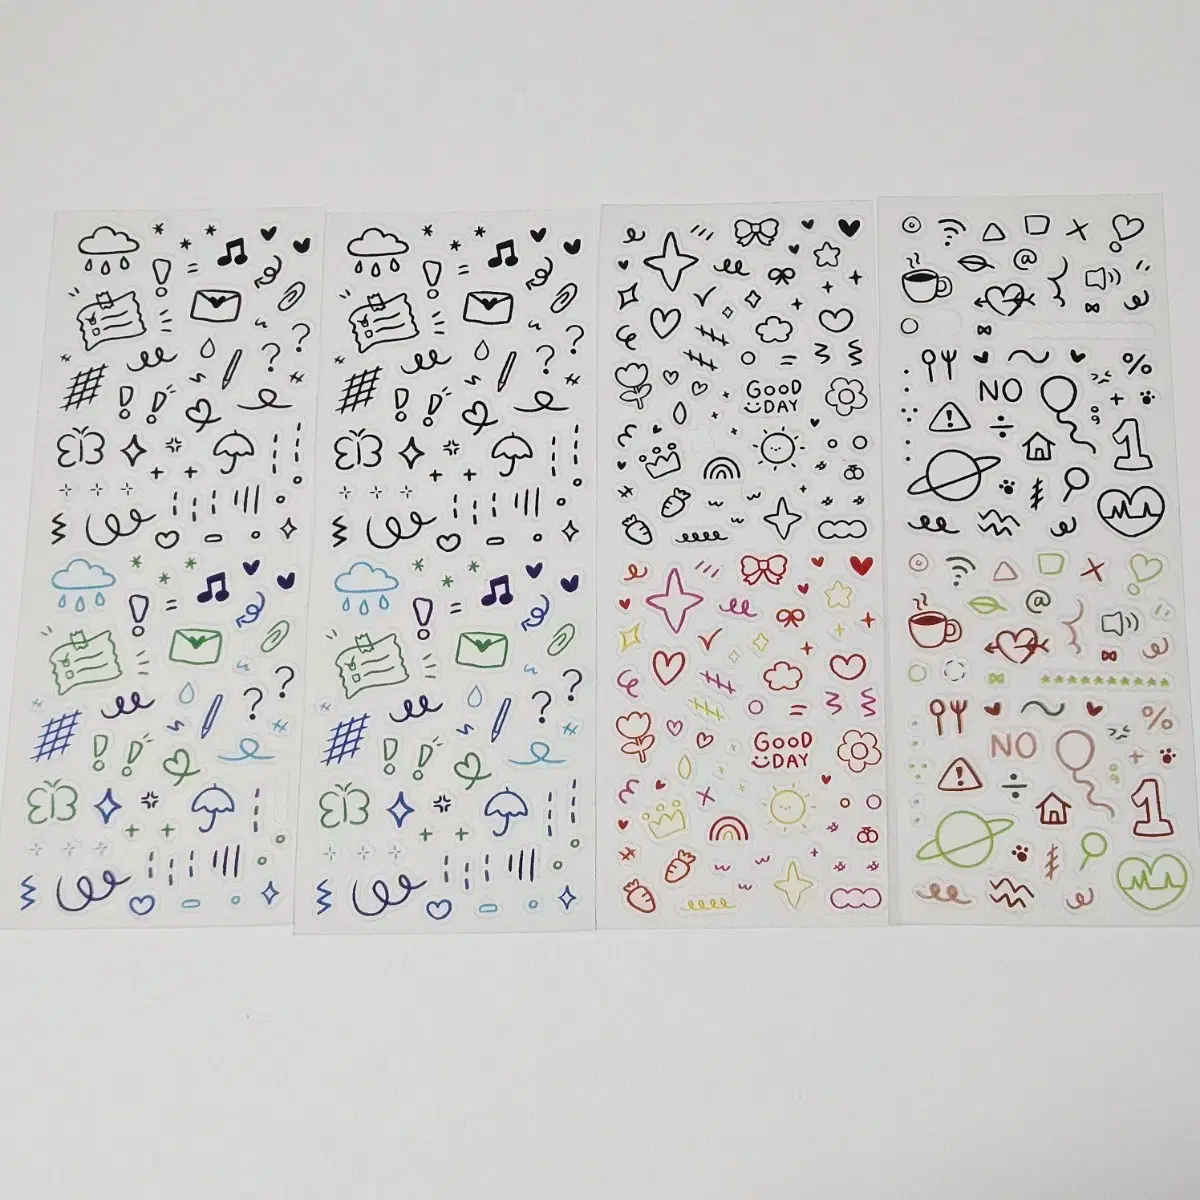 GOOD
DAY
@
NO
%
1
GOOD
DAY
@
NO
%
1